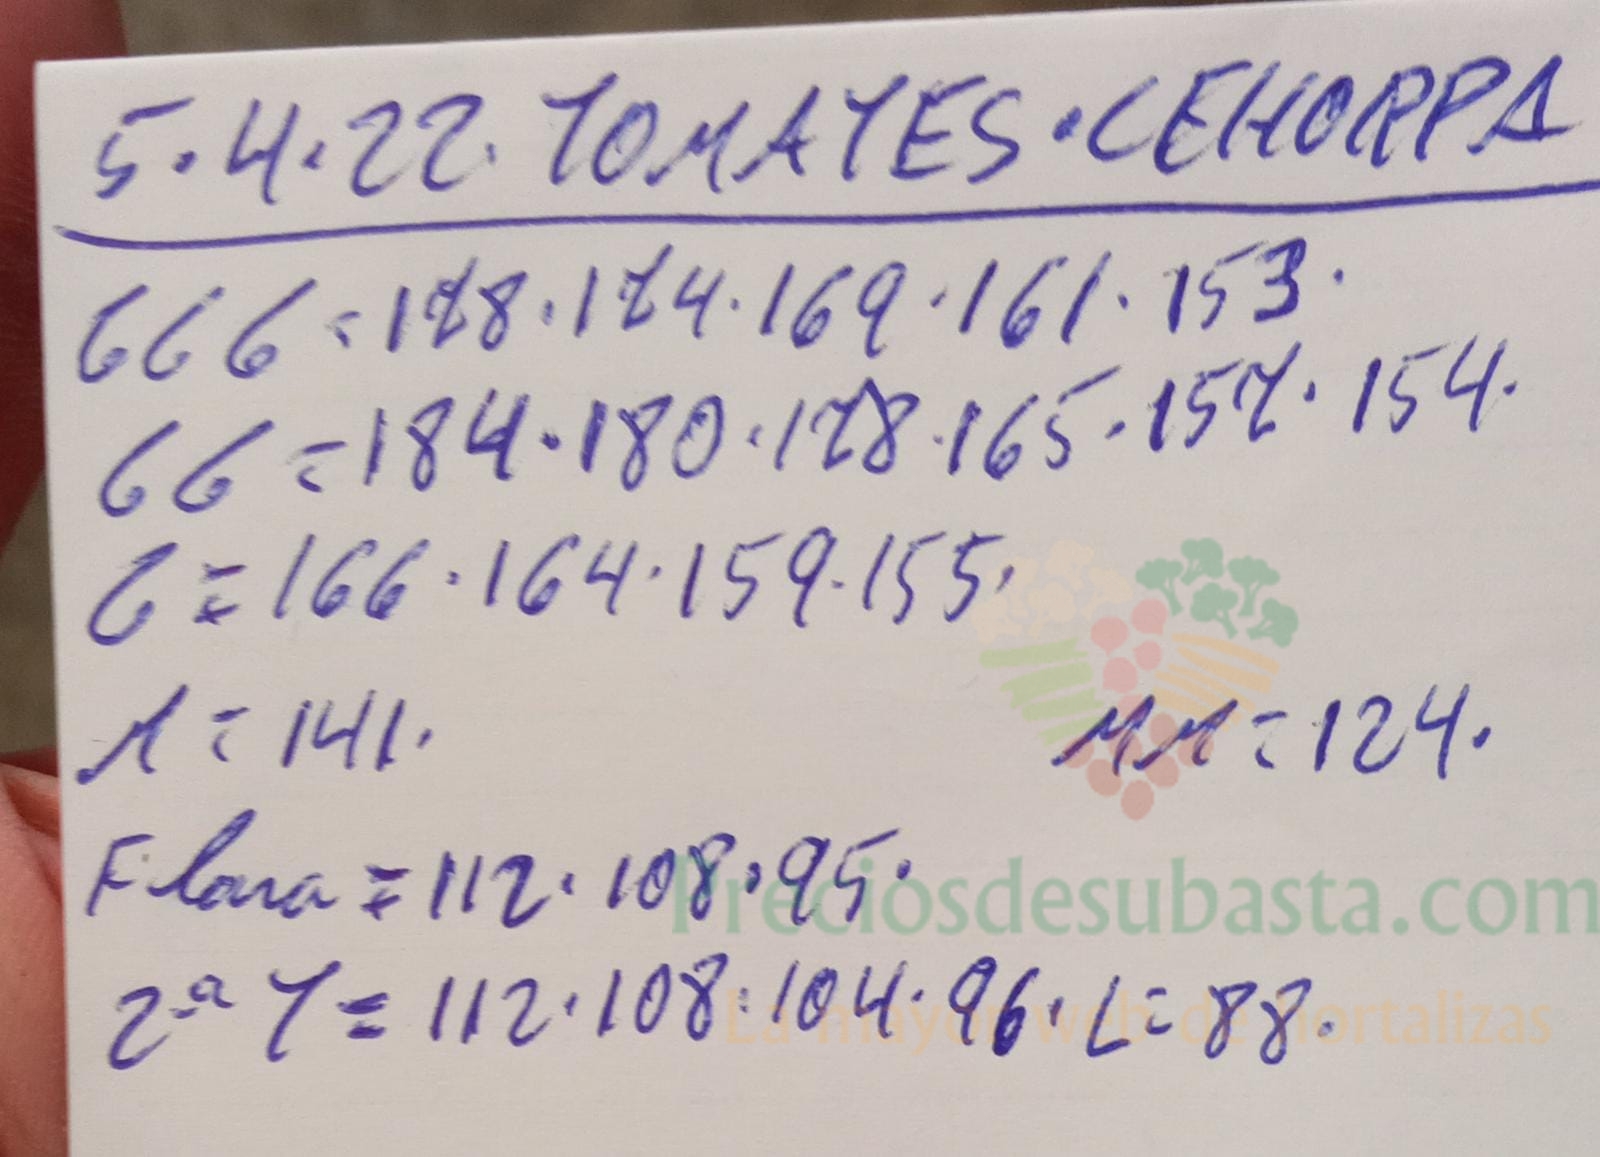 5.4.22. TOMATES. CEHORPA
GGG = 178.174.169.161.153.
GG = 184.180.178.165.157.154.
G = 166.164.159.155.
M = 141. MM = 124.
Flora = 112.108.95.
2ª T = 112.108.104.96. L = 88.
Preciosdesubasta.com
La mayor web de hortalizas